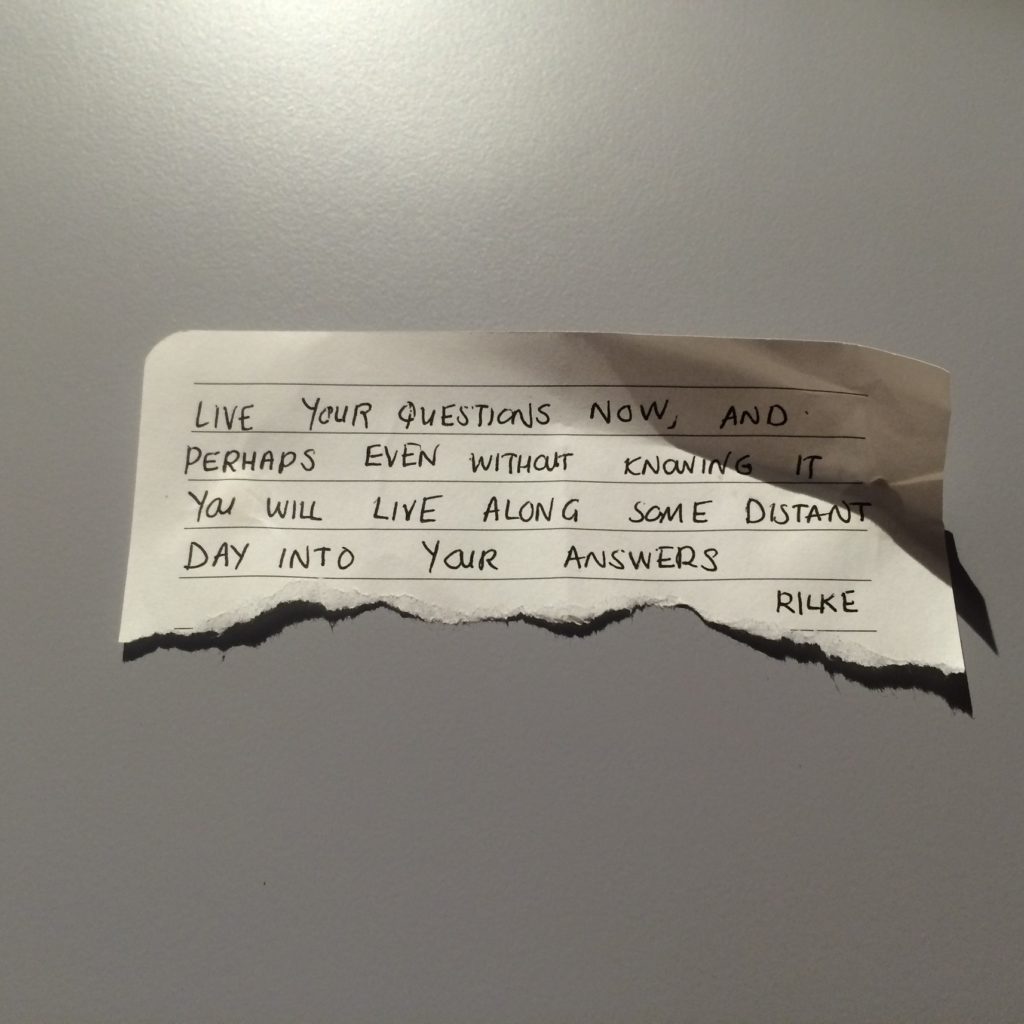 LIVE YOUR QUESTIONS NOW, AND
PERHAPS EVEN WITHOUT KNOWING IT
YOU WILL LIVE ALONG SOME DISTANT
DAY INTO YOUR ANSWERS
RILKE